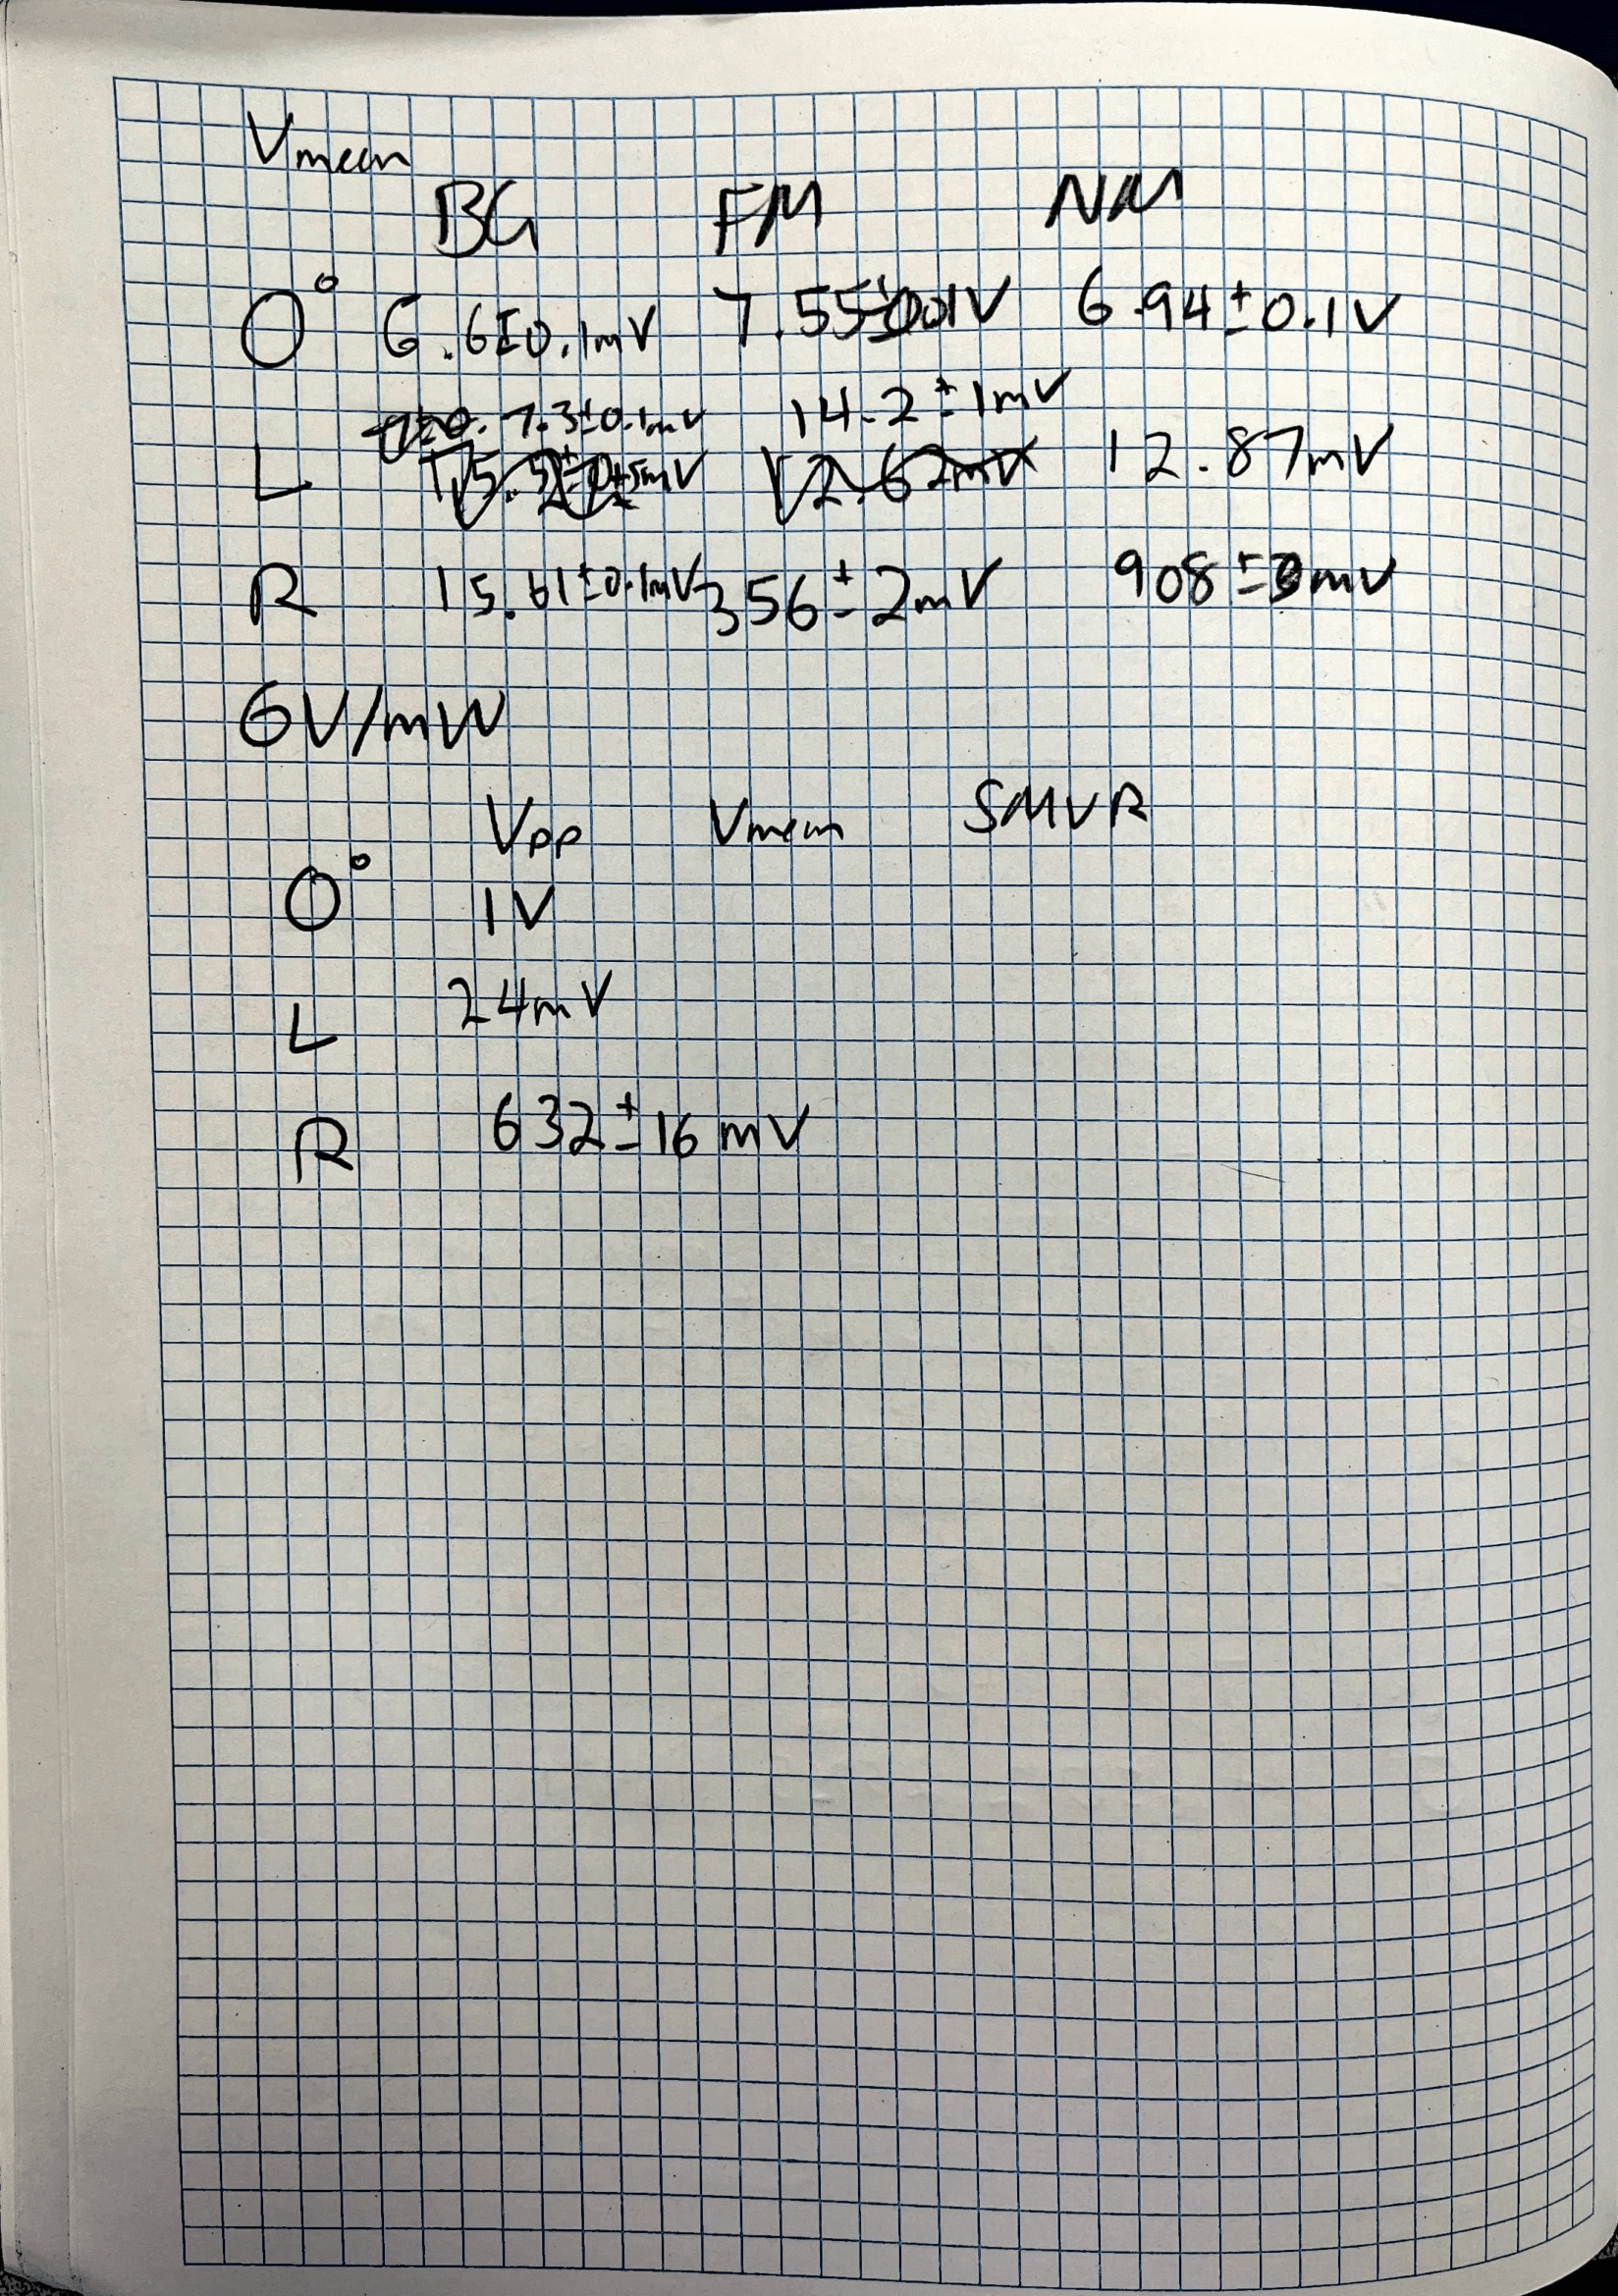 Vmean
BG FM NM
0° 6.6±0.1mV 7.55±0.01V 6.94±0.1V
7.3±0.1mV 14.2±1mV
L 12.62mV 12.87mV
R 15.61±0.1mV 356±2mV 908±3mV
6V/mW
Vpp Vmean SMVR
0° 1V
L 24mV
R 632±16mV